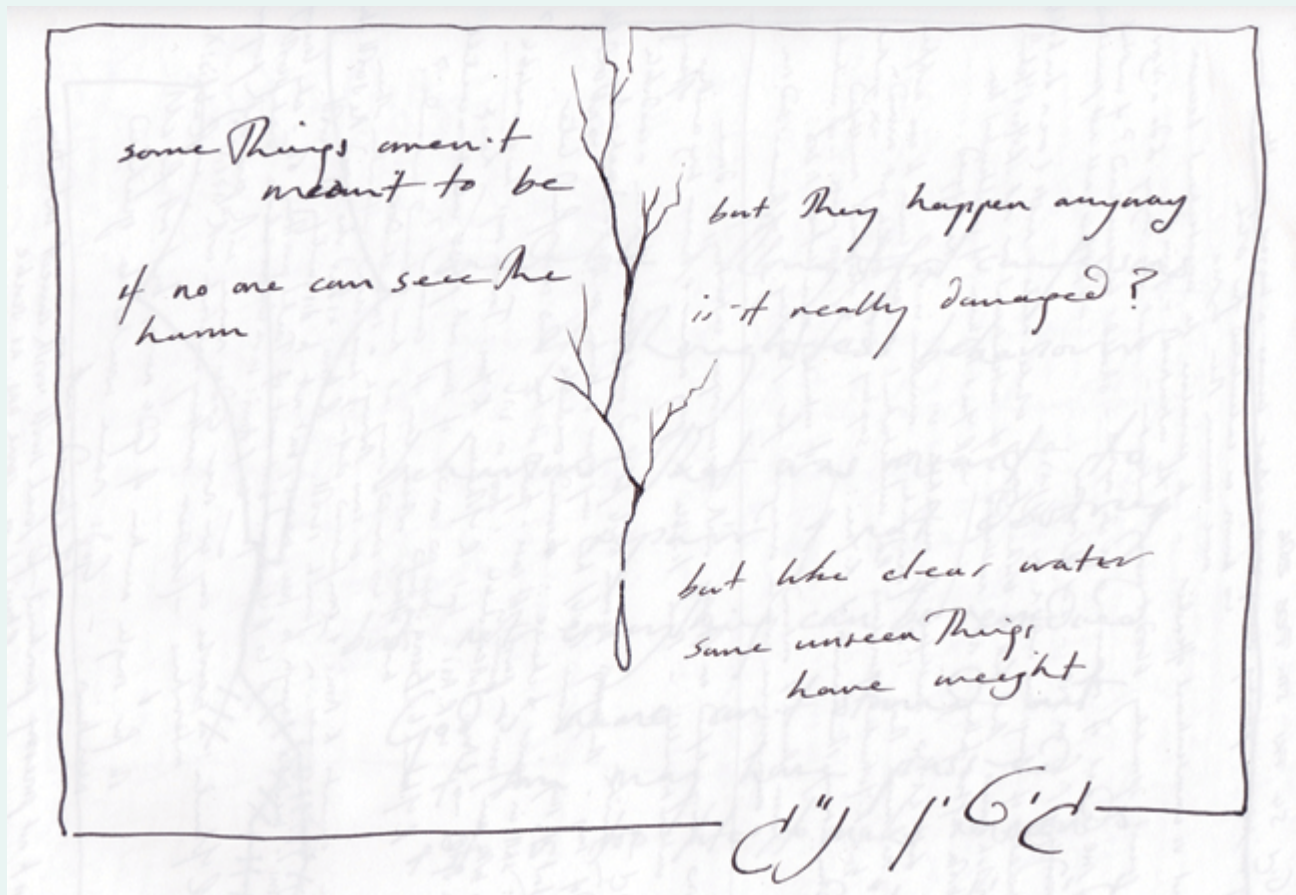 some Things aren't
meant to be
but They happen anyway
if no one can see The
harm
is it really damaged?
but like clear water
some unseen Things
have weight